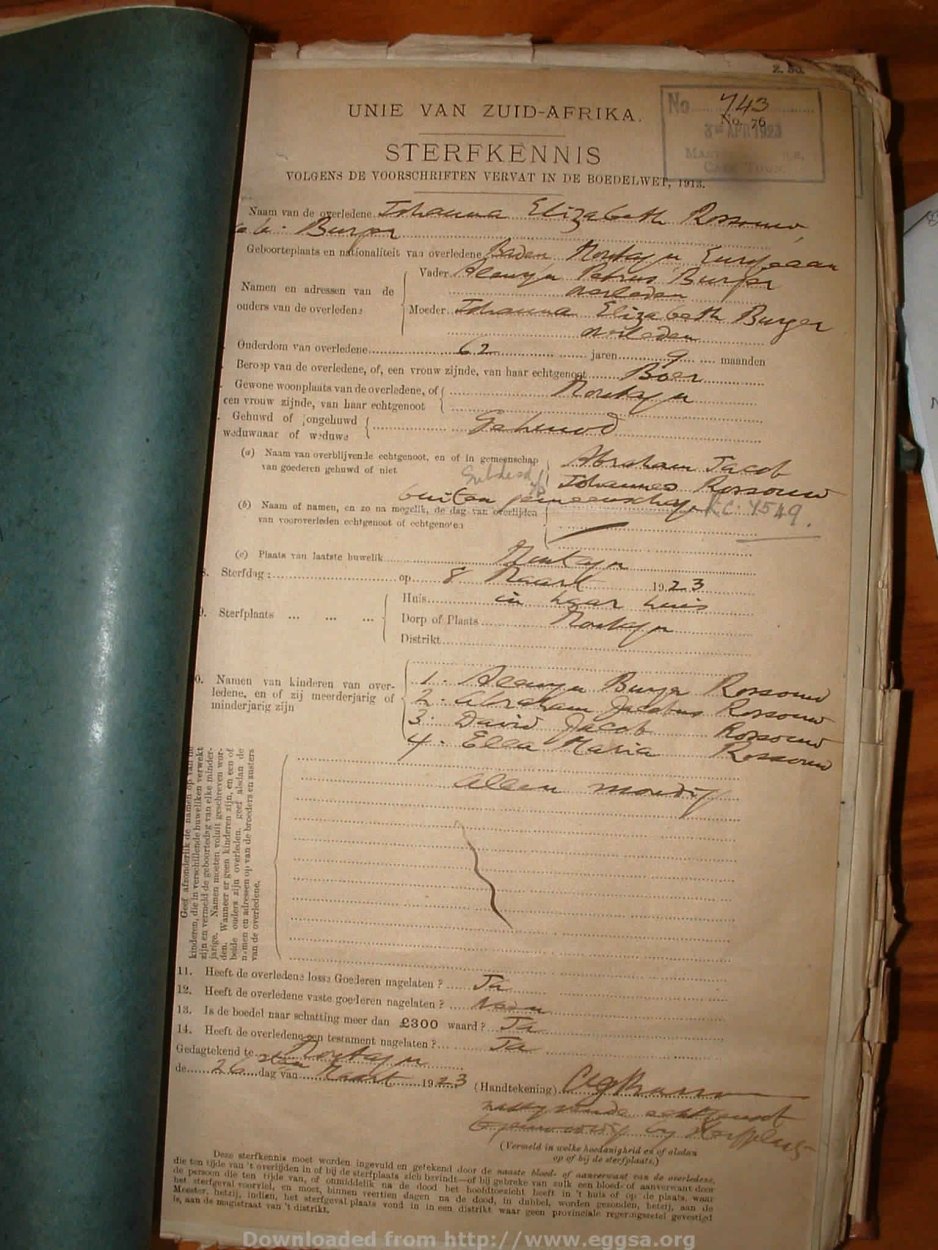 Z. 3d.
No. 743
UNIE VAN ZUID-AFRIKA.
No. 76
3 APR 1923
STERFKENNIS
VOLGENS DE VOORSCHRIFTEN VERVAT IN DE BOEDELWET, 1913.
Naam van de overledene Johanna Elizabeth Rossouw,
Burger
Geboorteplaats en nationaliteit van overledene Baden Montagu European
Namen en adressen van de ouders van de overledene
Vader Alewyn Petrus Burger
overleden
Moeder Johanna Elizabeth Burger
overleden
Ouderdom van overledene 62 jaren 9 maanden
Beroep van de overledene, of, een vrouw zijnde, van haar echtgenoot Boer
Gewone woonplaats van de overledene, of een vrouw zijnde, van haar echtgenoot Montagu
Gehuwd of ongehuwd weduwnaar of weduwe Gehuwd
(a) Naam van overblijvende echtgenoot, en of in gemeenschap van goederen gehuwd of niet Abraham Jacob
Johannes Rossouw
buiten gemeenschap
4549.
(b) Naam of namen, en zo na mogelik, de dag van overlijden van vooroverleden echtgenoot of echtgenoten
(c) Plaats van laatste huwelik Montagu
8. Sterfdag: op 8 Maart 1923
9. Sterfplaats ... ... ...
Huis in haar huis
Dorp of Plaats Montagu
Distrikt
10. Namen van kinderen van overledene, en of zij meerderjarig of minderjarig zijn
1. Alewyn Burger Rossouw
2. Abraham Jacobus Rossouw
3. David Jacob Rossouw
4. Ella Maria Rossouw
Allen mondig
Geef afzonderlik de namen op van de
kinderen, die in verschillende huweliken verwekt
zijn en vermeld de geboortedag van elke minder-
jarige. Namen moeten voluit geschreven wor-
den. Wanneer er geen kinderen zijn, en een of
beide ouders zijn overleden, geef alsdan de
namen en adressen op van de broeders en zusters
van de overledene.
11. Heeft de overledene losse Goederen nagelaten? Ja
12. Heeft de overledene vaste goederen nagelaten? Neen
13. Is de boedel naar schatting meer dan £300 waard? Ja
14. Heeft de overledene een testament nagelaten? Ja
Gedagtekend te Montagu
de 26 dag van Maart 1923 (Handtekening)
(Vermeld in welke hoedanigheid en of alsdan
op of bij de sterfplaats.)
Deze sterfkennis moet worden ingevuld en getekend door de naaste bloed- of aanverwant van de overledene,
die ten tijde van 't overlijden in of bij de sterfplaats zich bevindt—of bij gebreke van zulk een bloed- of aanverwant door
de persoon die ten tijde van, of onmiddelik na de dood het hoofdtoezicht heeft in 't huis of op de plaats, waar
het sterfgeval voorviel, en moet, binnen veertien dagen na de dood, in dubbel, worden gezonden, hetzij, aan de
Meester, hetzij, indien, het sterfgeval plaats vond in in een distrikt waar geen provinciale regeringszetel gevestigd
is, aan de magistraat van 't distrikt.
Downloaded from http://www.eggsa.org